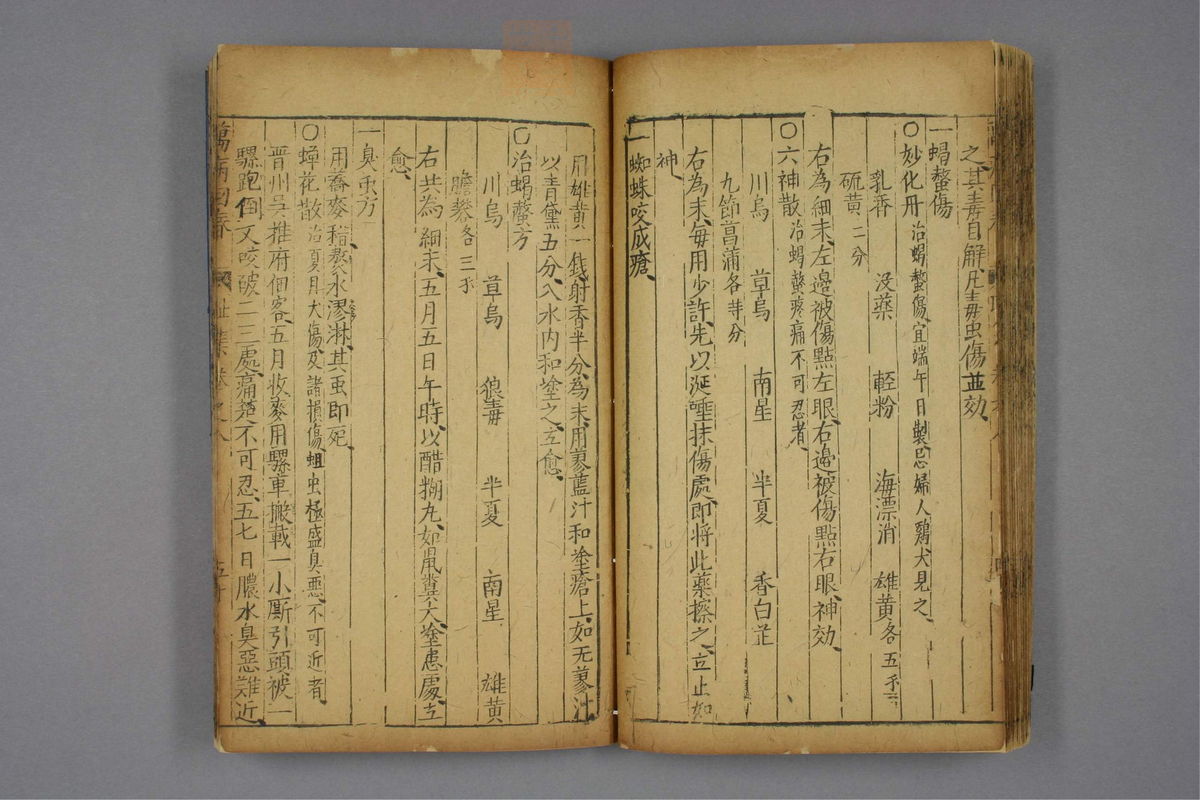 之、其毒自解、凡毒虫傷並効、
一蝎螫傷
〇妙化丹 治蝎螫傷、宜端午日製、忌婦人鷄犬見之、
乳香 没藥 輕粉 海漂消 雄黄各五
硫黄二分
右為細末、左邉被傷㸃左眼、右邉被傷㸃右眼、神効、
〇六神散 治蝎螫疼痛不可忍者、
川烏 草烏 南星 半夏 香白芷
九節菖蒲各等分
右為末、每用少許、先以涎唾抹傷處、即将此藥擦之、立止如
神、
一蜘蛛咬成瘡、
用雄黄一錢、射香半分、為末、用蓼藍汁和塗瘡上、如无蓼汁
以青黛五分、入水内和塗之、立愈、
〇治蝎螫方
川烏 草烏 狼毒 半夏 南星 雄黄
膽礬各三
右共為細末、五月五日午時、以醋糊丸、如鼠糞大、塗患處、立
愈、
一臭虫方
用蕎麥稭熬水澆淋、其虫即死、
〇蟬花散 治夏月犬傷及諸損傷、蛆虫極盛、臭惡、不可近者、
晋州吳推府佃客、五月收麥、用騾車搬載、一小厮引頭被一
騾跑倒、又咬破二三處、痛楚不可忍、五七日膿水臭惡難近、
萬病回春